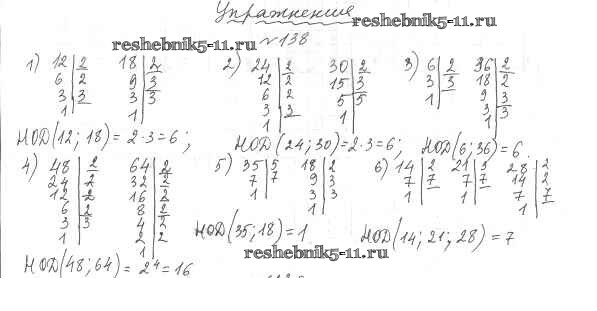 Упражнения
reshebnik5-11.ru
reshebnik5-11.ru
№138
1) 12 2 18 2 2) 24 2 30 2 3) 6 2 36 2
6 2 9 3 12 2 15 3 3 3 18 2
3 3 3 3 6 2 5 5 1 9 3
1 1 3 3 1 3 3
1 1
НОД(12; 18) = 2·3=6; НОД(24; 30)=2·3=6; НОД(6; 36)=6.
4) 48 2 64 2 5) 35 5 18 2 6) 14 2 21 3 28 2
24 2 32 2 7 7 9 3 7 7 7 7 14 2
12 2 16 2 1 3 3 1 1 7 7
6 2 8 2 1 1
3 3 4 2
1 2 2
1
НОД(35; 18) = 1 НОД(14; 21; 28) = 7
reshebnik5-11.ru
НОД(48; 64) = 2⁴ = 16